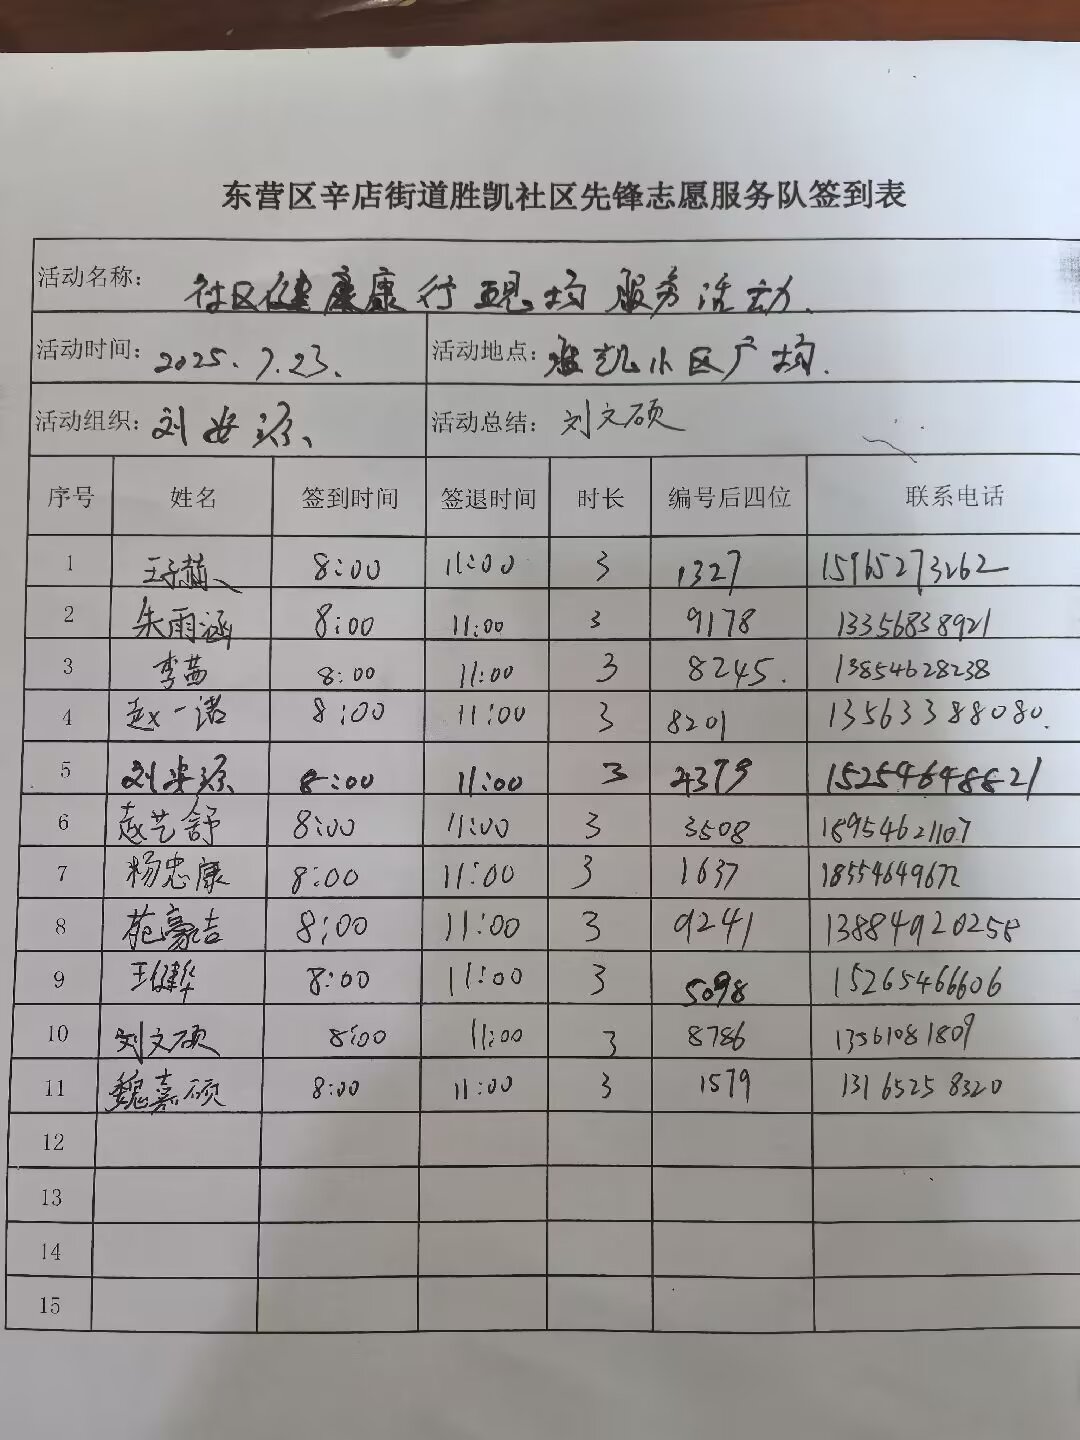 东营区辛店街道胜凯社区先锋志愿服务队签到表
活动名称: 社区健康康行 现场 服务活动.
活动时间: 2025.7.23. 活动地点: 胜凯小区广场.
活动组织: 刘安源、 活动总结: 刘文硕
序号 姓名 签到时间 签退时间 时长 编号后四位 联系电话
1 王子赫 8:00 11:00 3 1327 15965273262
2 朱雨涵 8:00 11:00 3 9178 13356838921
3 李茜 8:00 11:00 3 8245. 13854628238
4 赵一诺 8:00 11:00 3 8201 13563388080.
5 刘安源 8:00 11:00 3 4379 15254648821
6 赵艺舒 8:00 11:00 3 3508 18954621107
7 杨忠康 8:00 11:00 3 1637 18554649672
8 苑豪吉 8:00 11:00 3 9241 13884920258
9 王健华 8:00 11:00 3 5098 15265466606
10 刘文硕 8:00 11:00 3 8786 13561081809
11 魏嘉硕 8:00 11:00 3 1579 13165258320
12
13
14
15